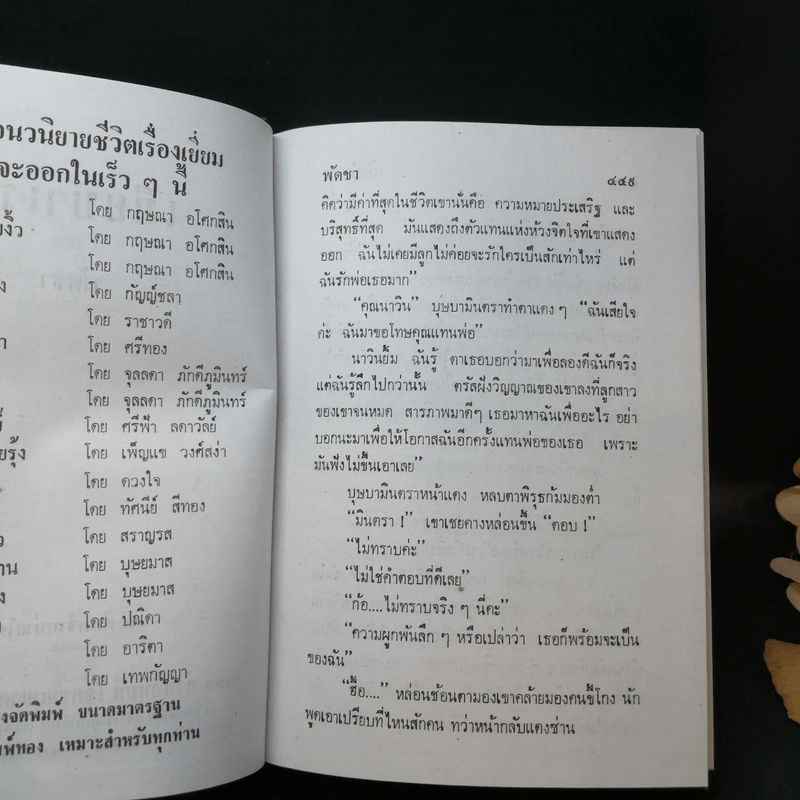 นวนิยายชีวิตเรื่องเยี่ยม
จะออกในเร็ว ๆ นี้
โดย กฤษณา อโศกสิน
โดย กฤษณา อโศกสิน
โดย กฤษณา อโศกสิน
โดย กัญญ์ชลา
โดย ราชาวดี
โดย ศรีทอง
โดย จุลลดา ภักดีภูมินทร์
โดย จุลลดา ภักดีภูมินทร์
โดย ศรีฟ้า ลดาวัลย์
โดย เพ็ญแข วงศ์สง่า
โดย ดวงใจ
โดย ทัศนีย์ สีทอง
โดย สราญรส
โดย บุษยมาส
โดย บุษยมาส
โดย ปณิตา
โดย อาริตา
โดย เทพกัญญา
จัดพิมพ์ ขนาดมาตรฐาน
พ์ทอง เหมาะสำหรับทุกท่าน
พัดชา
๔๔๙
คิดว่ามีค่าที่สุดในชีวิตเขานั่นคือ ความหมายประเสริฐ และ
บริสุทธิ์ที่สุด มันแสดงถึงตัวแทนแห่งห้วงจิตใจที่เขาแสดง
ออก ฉันไม่เคยมีลูกไม่ค่อยจะรักใครเป็นสักเท่าไหร่ แต่
ฉันรักพ่อเธอมาก”
“คุณนาวิน” บุษบามินตราทำตาแดง ๆ “ฉันเสียใจ
ค่ะ ฉันมาขอโทษคุณแทนพ่อ”
นาวินยิ้ม ฉันรู้ ตาเธอบอกว่ามาเพื่อลองดีฉันก็จริง
แต่ฉันรู้ลึกไปกว่านั้น ตรัสฝังวิญญาณของเขาลงที่ลูกสาว
ของเขาจนหมด สารภาพมาดีๆ เธอมาหาฉันเพื่ออะไร อย่า
บอกนะมาเพื่อให้โอกาสฉันอีกครั้งแทนพ่อของเธอ เพราะ
มันฟังไม่ขึ้นเอาเลย”
บุษบามินตราหน้าแดง หลบตาพิรุธก้มมองต่ำ
“มินตรา !” เขาเชยคางหล่อนขึ้น “ตอบ !”
“ไม่ทราบค่ะ”
“ไม่ใช่คำตอบที่ดีเลย”
“ก้อ....ไม่ทราบจริง ๆ นี่คะ”
“ความผูกพันลึก ๆ หรือเปล่าว่า เธอก็พร้อมจะเป็น
ของฉัน”
“ฮื้อ....” หล่อนช้อนตามองเขาคล้ายมองคนขี้โกง นัก
พูดเอาเปรียบที่ไหนสักคน ทว่าหน้ากลับแดงซ่าน